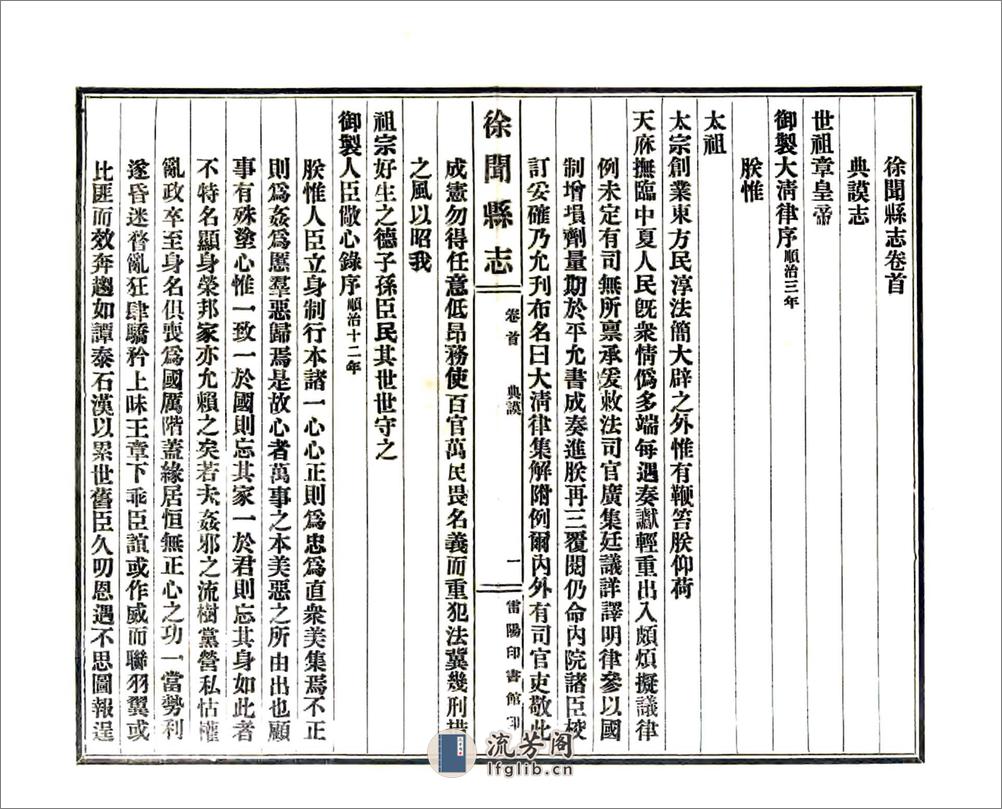 徐聞縣志卷首
典謨志
世祖章皇帝
御製大淸律序順治三年
朕惟
太祖
太宗創業東方民淳法簡大辟之外惟有鞭笞朕仰荷
天庥撫臨中夏人民旣衆情僞多端每遇奏讞輕重出入頗煩擬議律
例未定有司無所禀承爰敕法司官廣集廷議詳譯明律參以國
制增損劑量期於平允書成奏進朕再三覆閱仍命內院諸臣校
訂妥確乃允刊布名曰大淸律集解附例爾內外有司官吏敬此
徐聞縣志
卷首
典謨
一
雷陽印書館印
成憲勿得任意低昂務使百官萬民畏名義而重犯法冀幾刑措
之風以昭我
祖宗好生之德子孫臣民其世世守之
御製人臣儆心錄序順治十二年
朕惟人臣立身制行本諸一心心正則爲忠爲直衆美集焉不正
則爲姦爲慝羣惡歸焉是故心者萬事之本美惡之所由出也顧
事有殊塗心惟一致一於國則忘其家一於君則忘其身如此者
不特名顯身榮邦家亦允賴之矣若夫姦邪之流樹黨營私怙權
亂政卒至身名俱喪爲國厲階蓋緣居恒無正心之功一當勢利
遂昏迷瞀亂狂肆驕矜上昧王章下乖臣誼或作威而聯羽翼或
比匪而效奔趨如譚泰石漢以累世舊臣久叨恩遇不思圖報逞
流芳阁
lfglib.cn